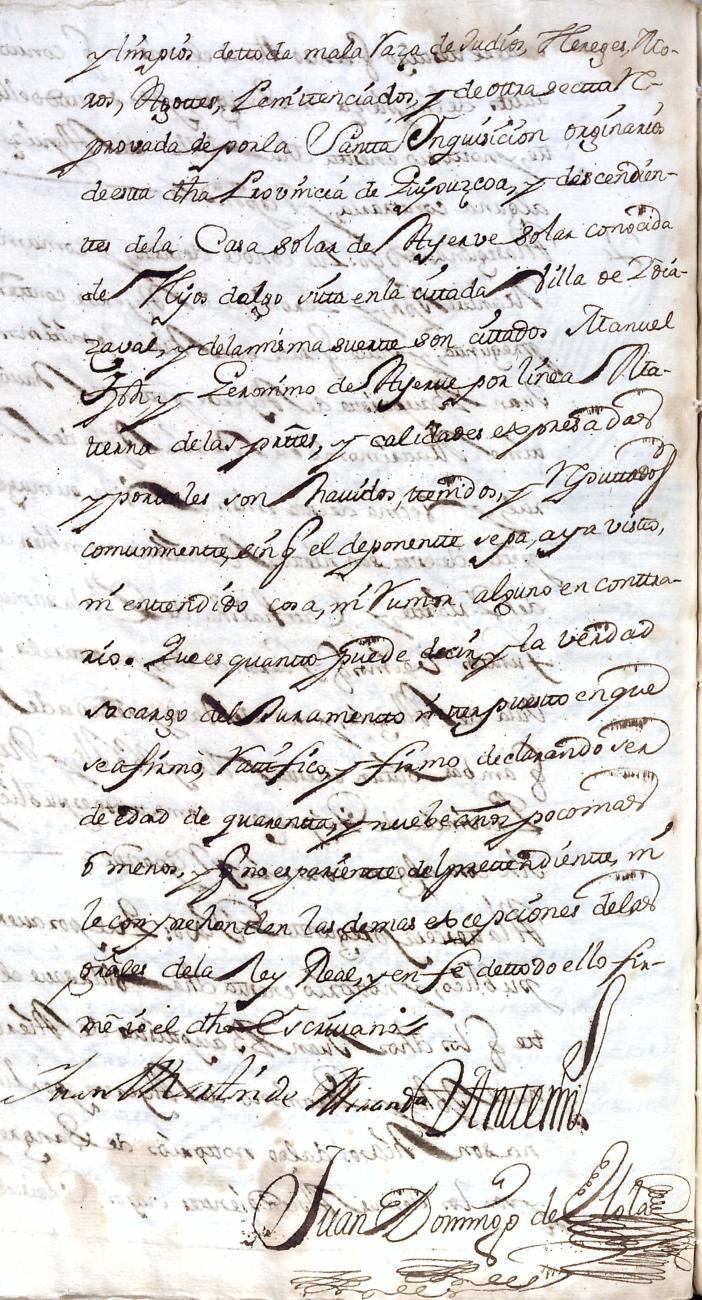 y limpios detoda mala raza de Judios, Hereges, Mo-
ros, Agotes, Penitenciados, y de otra secta Re-
provada de por la Santa Inquisicion originarios
de esta dha Provincia de Guipuzcoa, y descendien-
tes dela Casa solar de Ayerve solar conocida
de Hijos dalgo sita en la citada Villa de Ydia-
zaval, y delamisma suerte son citados Manuel
Jph y Geronimo de Ayerve por linea Ma-
terna delas partes, y calidades expresadas
y portales son havidos, tenidos, y Reputados
comunmente, sin q el deponente sepa, aya visto,
ni entendido cosa, ni rumor alguno en contra-
rio. Que es quanto puede decir, y la verdad
so cargo del Juramento interpuesto en que
se afirmò, Ratificò, y firmò declarando ser
de edad de quarenta, y nuebe años poco mas
ò menos, y q no es pariente del pretendiente, ni
le comprehenden las demas excepciones delas
grâles dela Ley Real, y en feè detodo ello fir-
mè Yo el dho Escrivano
Juan Martin de Aranda Antemi
Juan Domingo de